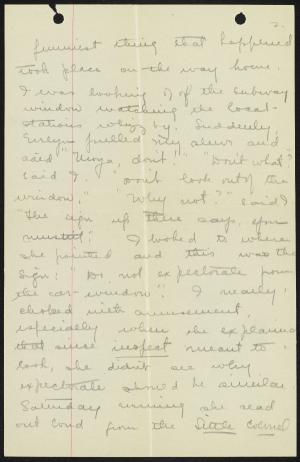 2.
funniest thing that happened
took place on the way home.
I was looking out of the subway
window watching the local
stations whizz by. Suddenly,
Evelyn pulled my sleeve and
said, " don't!" "Don't what?"
said I. "Don't look out of the
window." "Why not?" said I
"The sign up there says, you
mustn't." I looked to where
she pointed and this was the
sign: "Do not expectorate from
the car window". I nearly
choked with amusement,
especially when she explained
that since inspect meant to
look, she didn't see why
expectorate should be similar.
Saturday evening she read
out loud from the Little Colonel